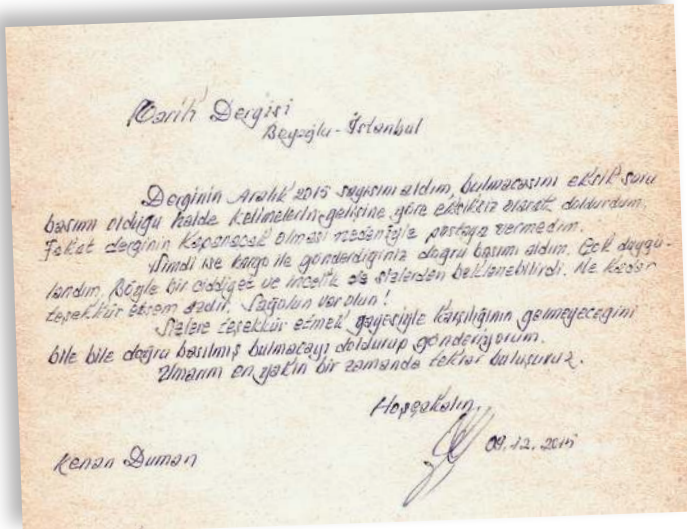 Tarih Dergisi
Beyoğlu - İstanbul
Derginin Aralık 2015 sayısını aldım, bulmacasını eksik soru
basımı olduğu halde kelimelerin gelişine göre eksiksiz olarak doldurdum.
Fakat derginin kapanacak olması nedeniyle postaya vermedim.
Şimdi ise kargo ile gönderdiğiniz doğru basımı aldım. Çok duygu-
landım, Böyle bir ciddiyet ve incelik de sizlerden beklenebilirdi. Ne kadar
teşekkür etsem azdır. Sağolun varolun!
Sizlere teşekkür etmek gayesiyle karşılığının gelmeyeceğini
bile bile doğru basılmış bulmacayı doldurup gönderiyorum.
Umarım en yakın bir zamanda tekrar buluşuruz.
Hoşçakalın.
09.12.2015
Kenan Duman